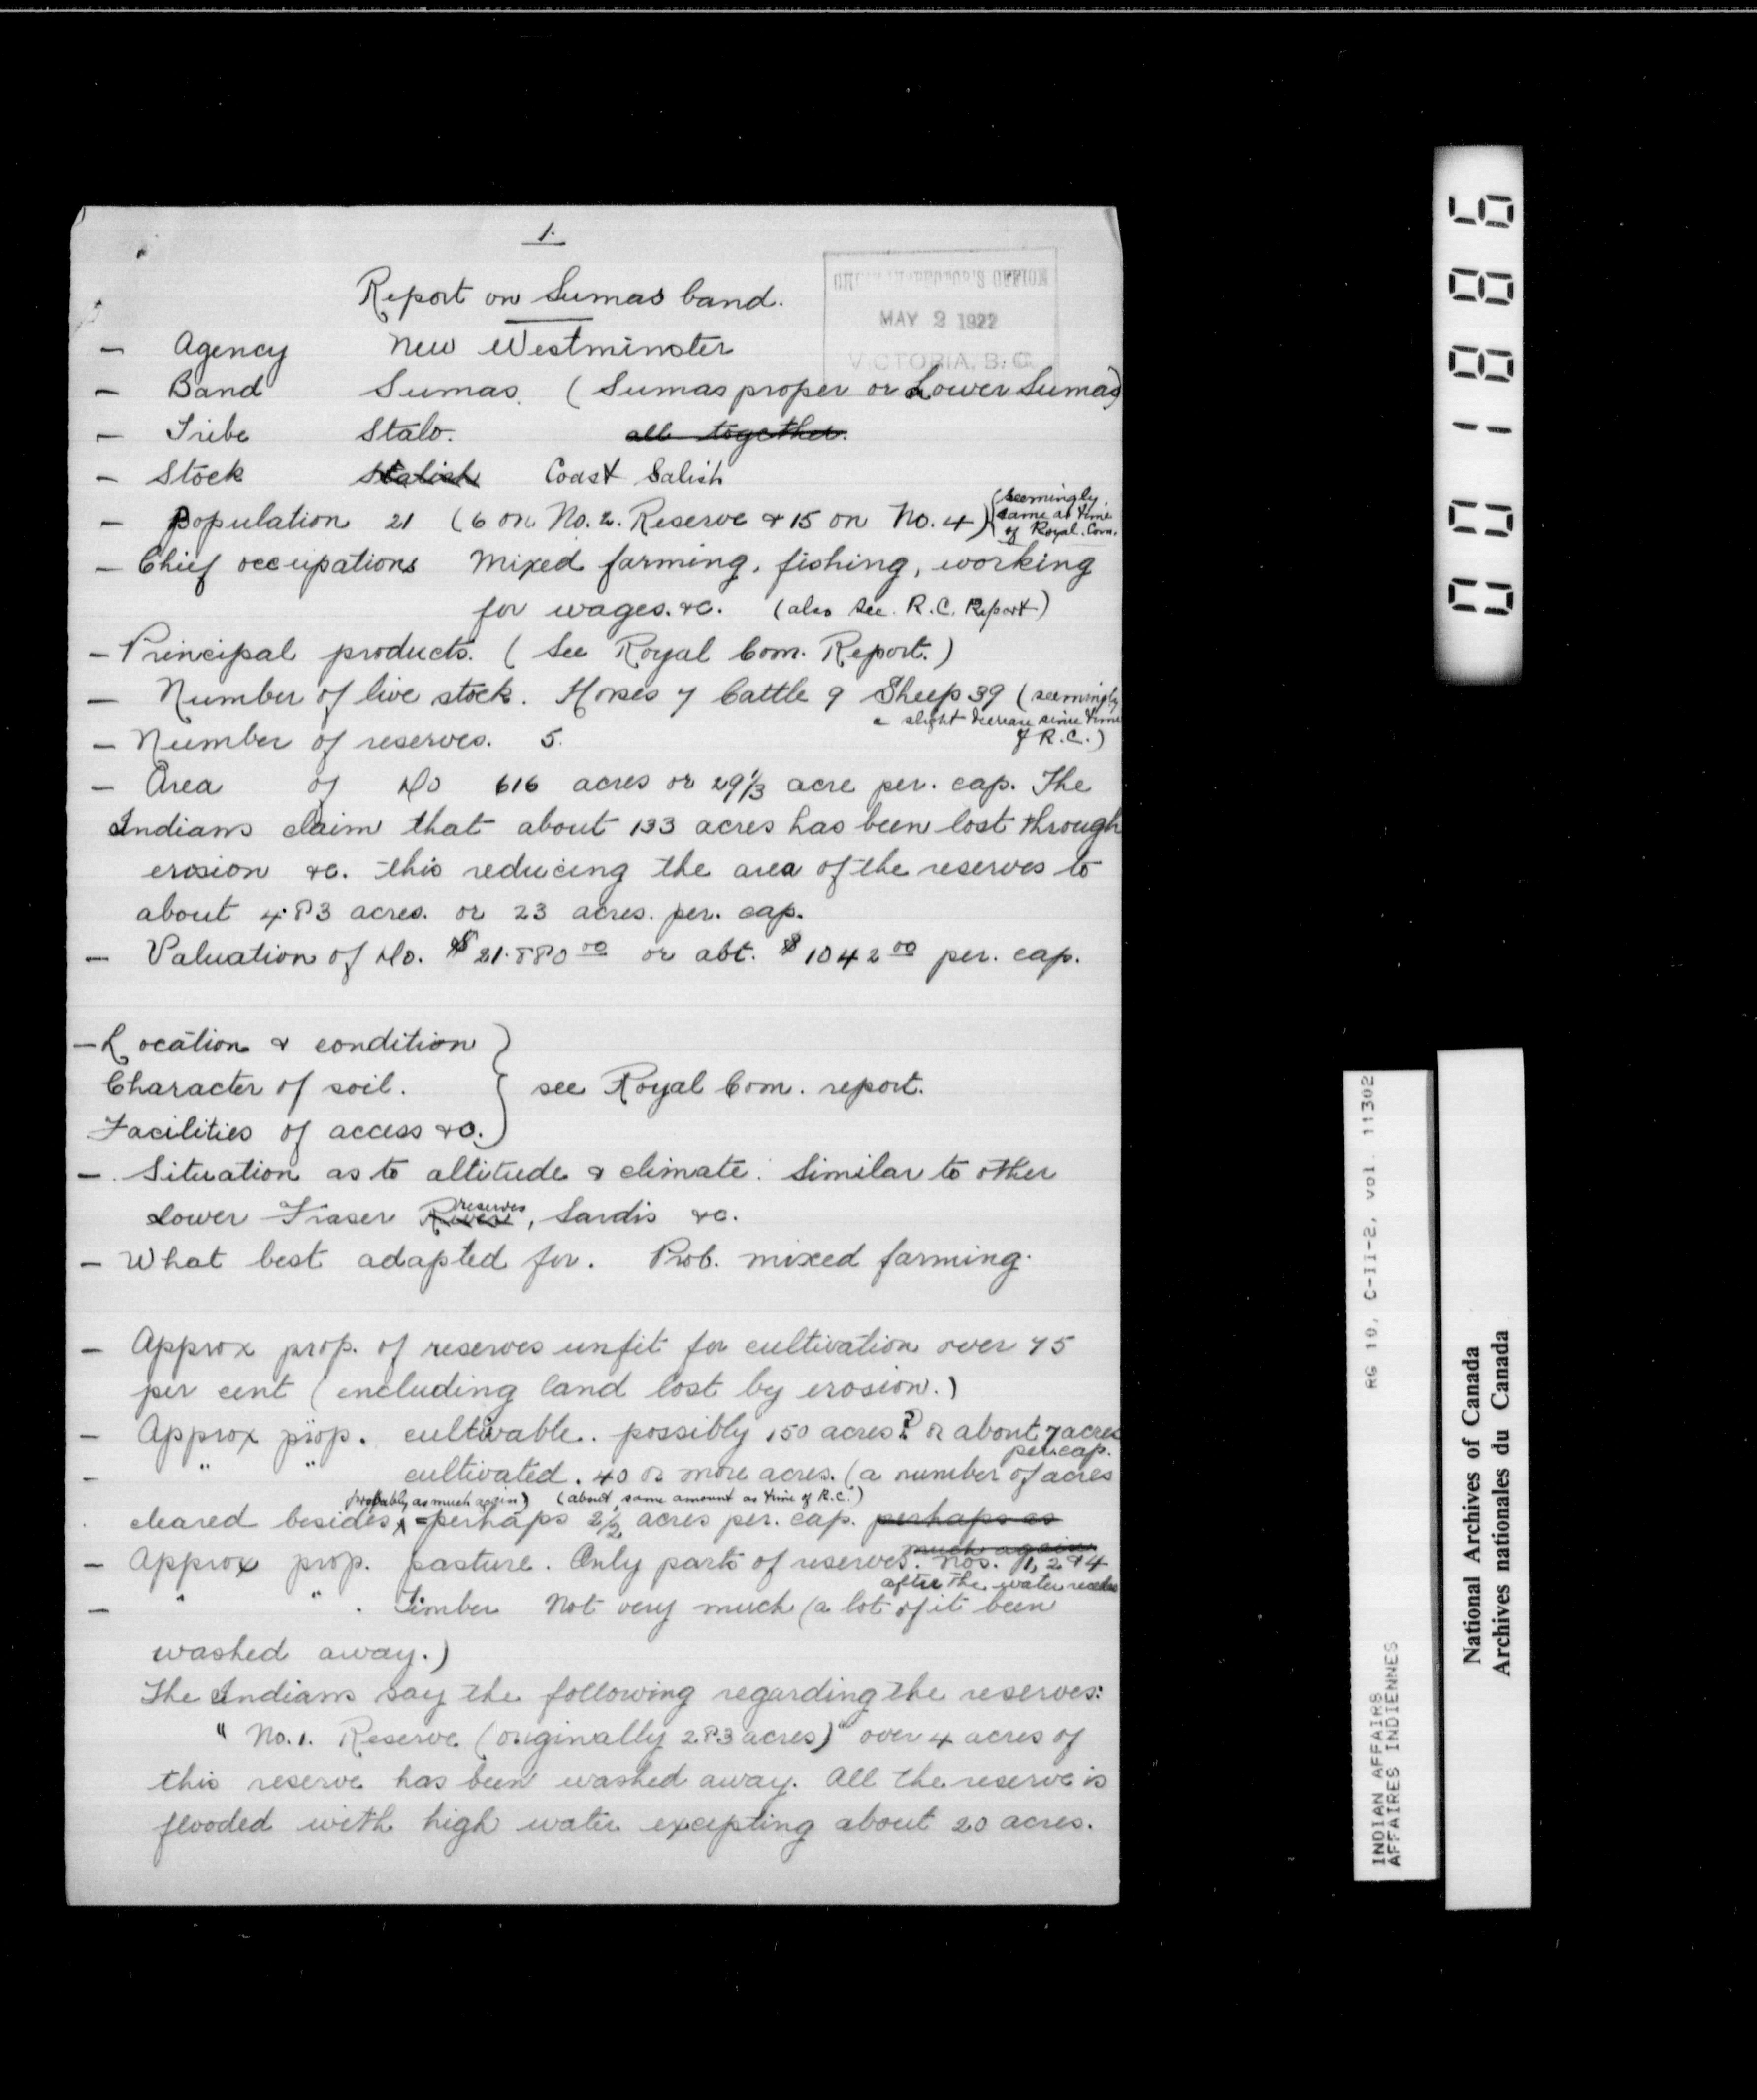 1.
Report on Sumas band.
MAY 2 1922
VICTORIA, B.C.
– Agency New Westminster
– Band Sumas. (Sumas proper or Lower Sumas)
– Tribe Stalo. all together.
– Stock Stalish Coast Salish
– Population 21 (6 on No. 2. Reserve & 15 on No. 4) (seemingly
same as time
of Royal. Com.
– Chief occupations Mixed farming, fishing, working
for wages. &c. (also see. R.C. Report)
– Principal products. (See Royal Com. Report.)
– Number of live stock. Horses 7 Cattle 9 Sheep 39 (seemingly
a slight decrease since time
of R.C.)
– Number of reserves. 5.
– Area of Do 616 acres or 29 1/3 acre per. cap. The
Indians claim that about 133 acres has been lost through
erosion &c. this reducing the area of the reserves to
about 483 acres. or 23 acres. per. cap.
– Valuation of Do. $21.880 00 or abt. $1042 00 per. cap.
– Location & condition
Character of soil. } see Royal Com. report.
Facilities of access &c.
–. Situation as to altitude & climate. Similar to other
Lower Fraser River reserves, Sardis &c.
– What best adapted for. Prob. mixed farming.
– Approx prop. of reserves unfit for cultivation over 75
per cent (including land lost by erosion.)
– Approx prop. cultivable. possibly 150 acres? or about 7 acres
per. cap.
– " " cultivated. 40 or more acres. (a number of acres
probably as much again) (about same amount as time of R.C.)
cleared besides, = perhaps 2 1/2 acres per. cap. perhaps as
much again
– Approx prop. pasture. Only parts of reserves. Nos. 1, 2 & 4
after the water recedes
– " " . Timber Not very much (a lot of it been
washed away.)
The Indians say the following regarding the reserves:
" No. 1. Reserve (originally 283 acres)" over 4 acres of
this reserve has been washed away. All the reserve is
flooded with high water excepting about 20 acres.
0001886
RG 10, C-II-2, vol. 11302
INDIAN AFFAIRS
AFFAIRES INDIENNES
National Archives of Canada
Archives nationales du Canada